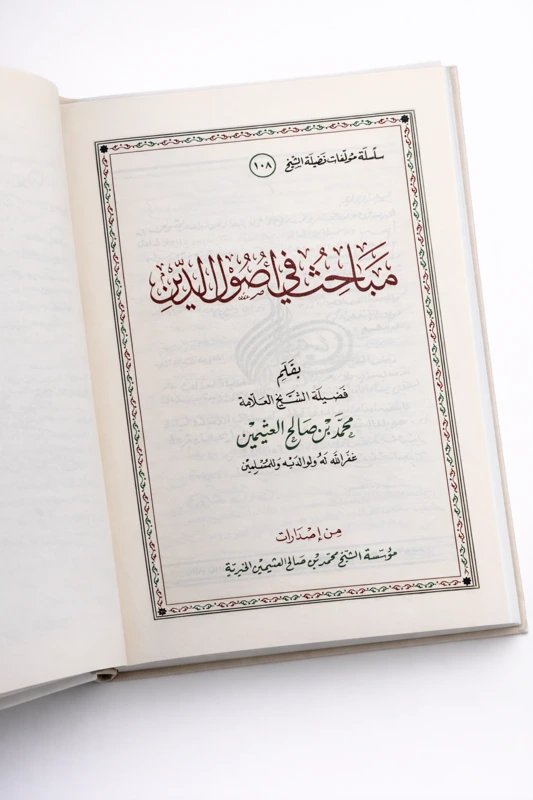 سلسلة مؤلفات فضيلة الشيخ ١٠٨
مباحث في أصول الدين
بقلم
فضيلة الشيخ العلامة
محمد بن صالح العثيمين
غفر الله له ولوالديه وللمسلمين
من إصدارات
مؤسسة الشيخ محمد بن صالح العثيمين الخيرية